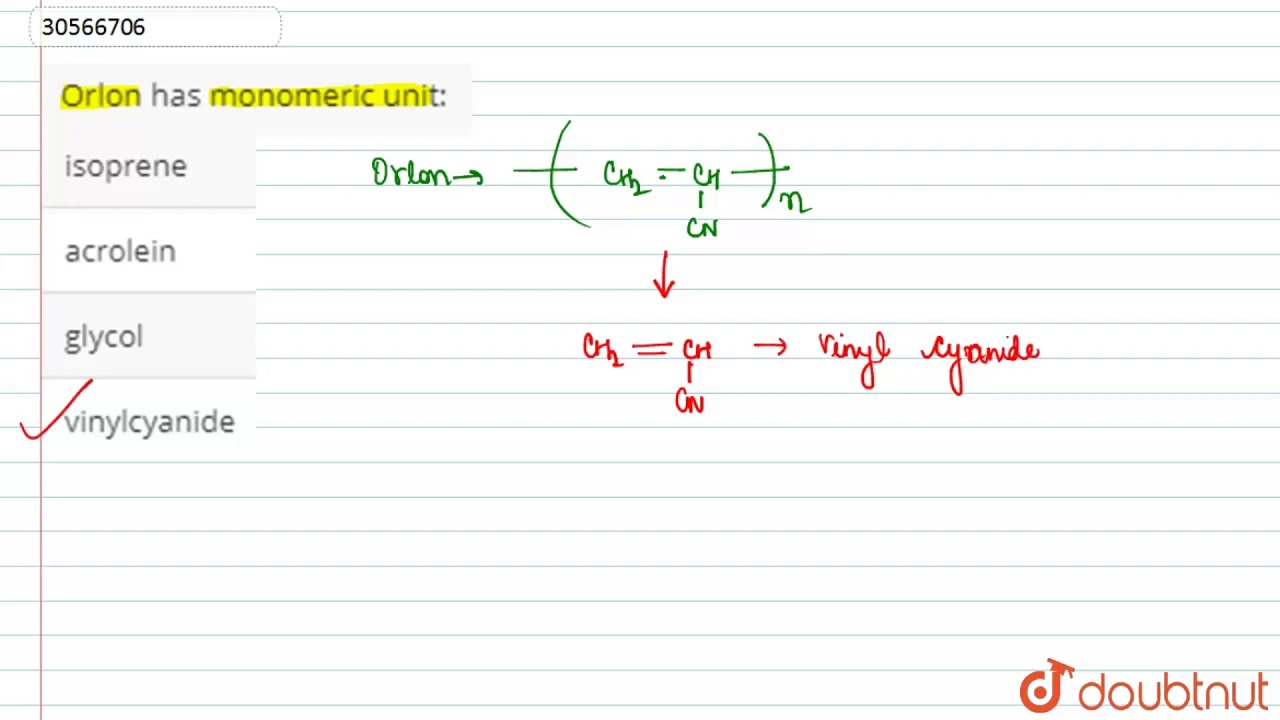 30566706
Orlon has monomeric unit:
isoprene
acrolein
glycol
vinylcyanide
Orlon → ( CH2 = CH )n
CN
↓
CH2 = CH → vinyl cyanide
CN
doubtnut